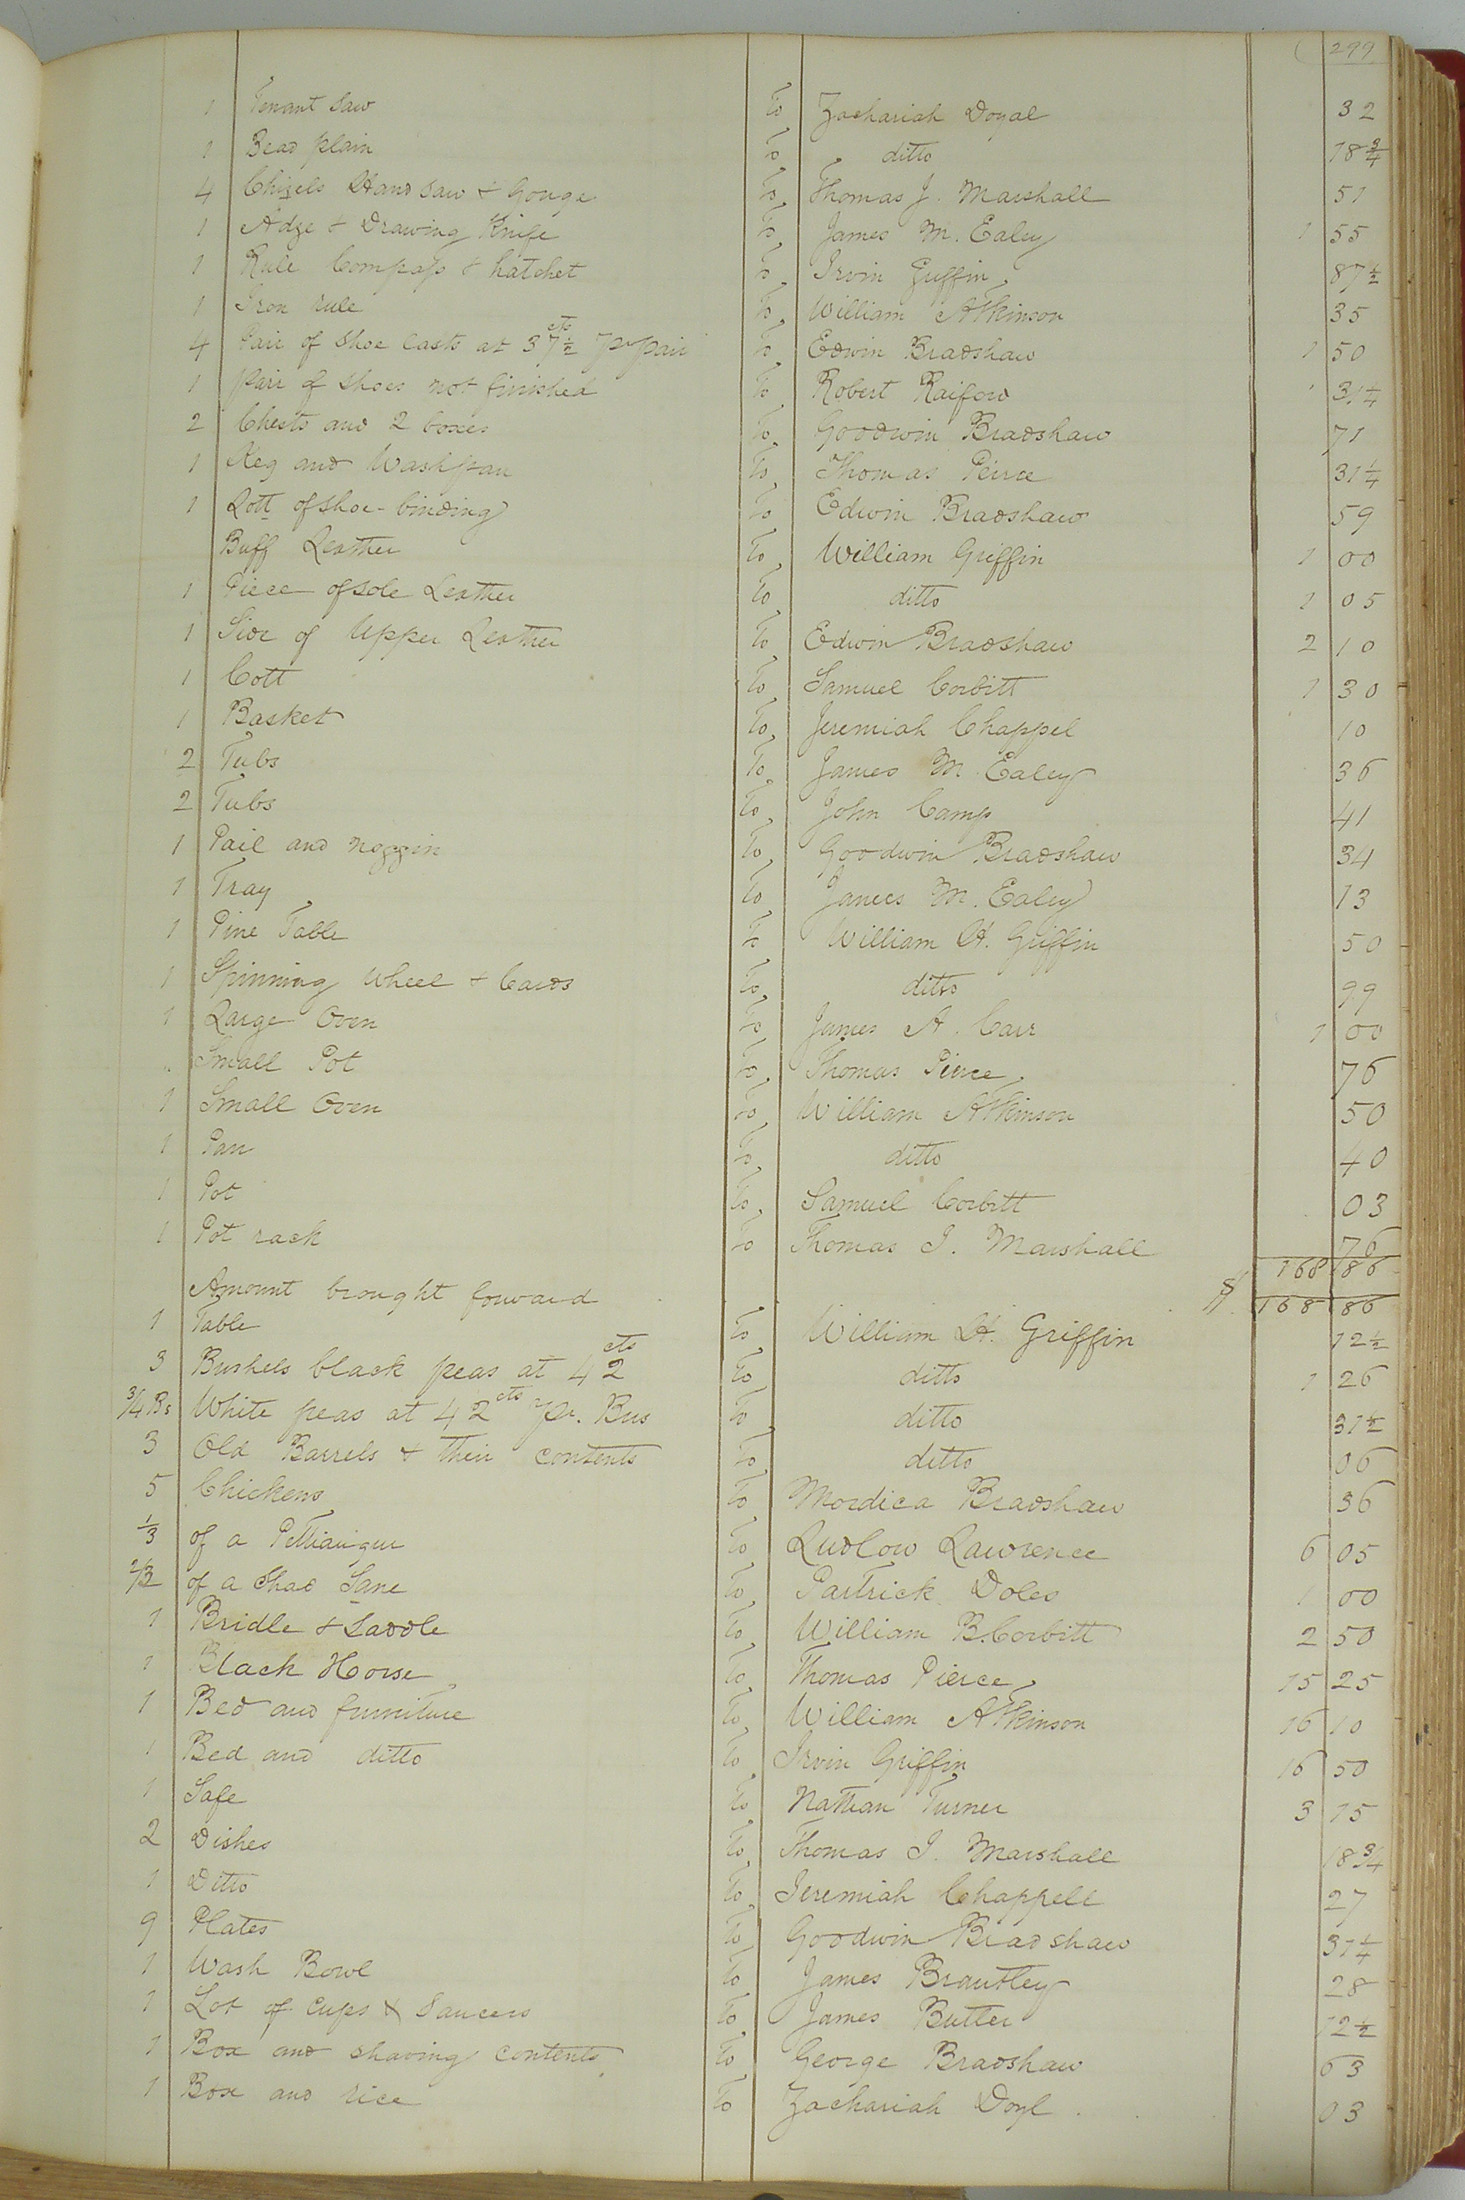 299
1 Tenant Saw To Zachariah Doyal 32
1 Bead plain To ditto 18 3/4
4 Chisels Hand saw & Gouge To Thomas J. Marshall 51
1 Adze & Drawing Knife To James M. Ealey 1 55
1 Rule Compass & hatchet To Irvin Griffin 87 1/2
1 Iron rule To William Atkinson 35
4 Pair of shoe Lasts at 37 1/2 cts pr pair To Edwin Bradshaw 1 50
1 pair of shoes not finished To Robert Raiford 31 1/4
2 Chests and 2 boxes To Goodwin Bradshaw 71
1 Keg and Washpan To Thomas Peirce 31 1/4
1 Lott of shoe-binding To Edwin Bradshaw 59
Buff Leather To William Griffin 1 00
1 Piece of sole Leather To ditto 1 05
1 Side of Upper Leather To Edwin Bradshaw 2 10
1 Cott To Samuel Corbitt 1 30
1 Basket To Jeremiah Chappel 10
2 Tubs To James M. Ealey 36
2 Tubs To John Camp 41
1 Pail and noggin To Goodwin Bradshaw 34
1 Tray To James M. Ealey 13
1 Pine Table To William H. Griffin 50
1 Spinning Wheel & Cards To ditto 99
1 Large Oven To James A. Carr 1 00
" Small Pot To Thomas Pierce 76
1 Small Oven To William Atkinson 50
1 Pan To ditto 40
1 Pot To Samuel Corbitt 03
1 Pot rack To Thomas J. Marshall 76
168 86
Amount brought forward $ 168 86
1 Table To William H. Griffin 12 1/2
3 Bushels black peas at 42 cts To ditto 1 26
3/4 Bs White peas at 42 cts pr. Bus To ditto 31 1/2
3 Old Barrels & their contents To ditto 06
5 Chickens To Mordica Bradshaw 36
1/3 of a Pettiaugur To Ludlow Lawrence 6 05
2/3 of a Shad Sane To Partrick Doles 1 00
1 Bridle & Saddle To William B. Corbitt 2 50
1 Black Horse To Thomas Pierce 15 25
1 Bed and furniture To William Atkinson 16 10
1 Bed and ditto To Irvin Griffin 16 50
1 Safe To Nathan Turner 3 15
2 Dishes To Thomas J. Marshall 18 3/4
1 Ditto To Jeremiah Chappell 27
9 Plates To Goodwin Bradshaw 31 1/4
1 Wash Bowl To James Brantley 28
1 Lot of Cups & Saucers To James Butler 12 1/2
1 Box and shaving contents To George Bradshaw 63
1 Box and rice To Zachariah Doyl 03